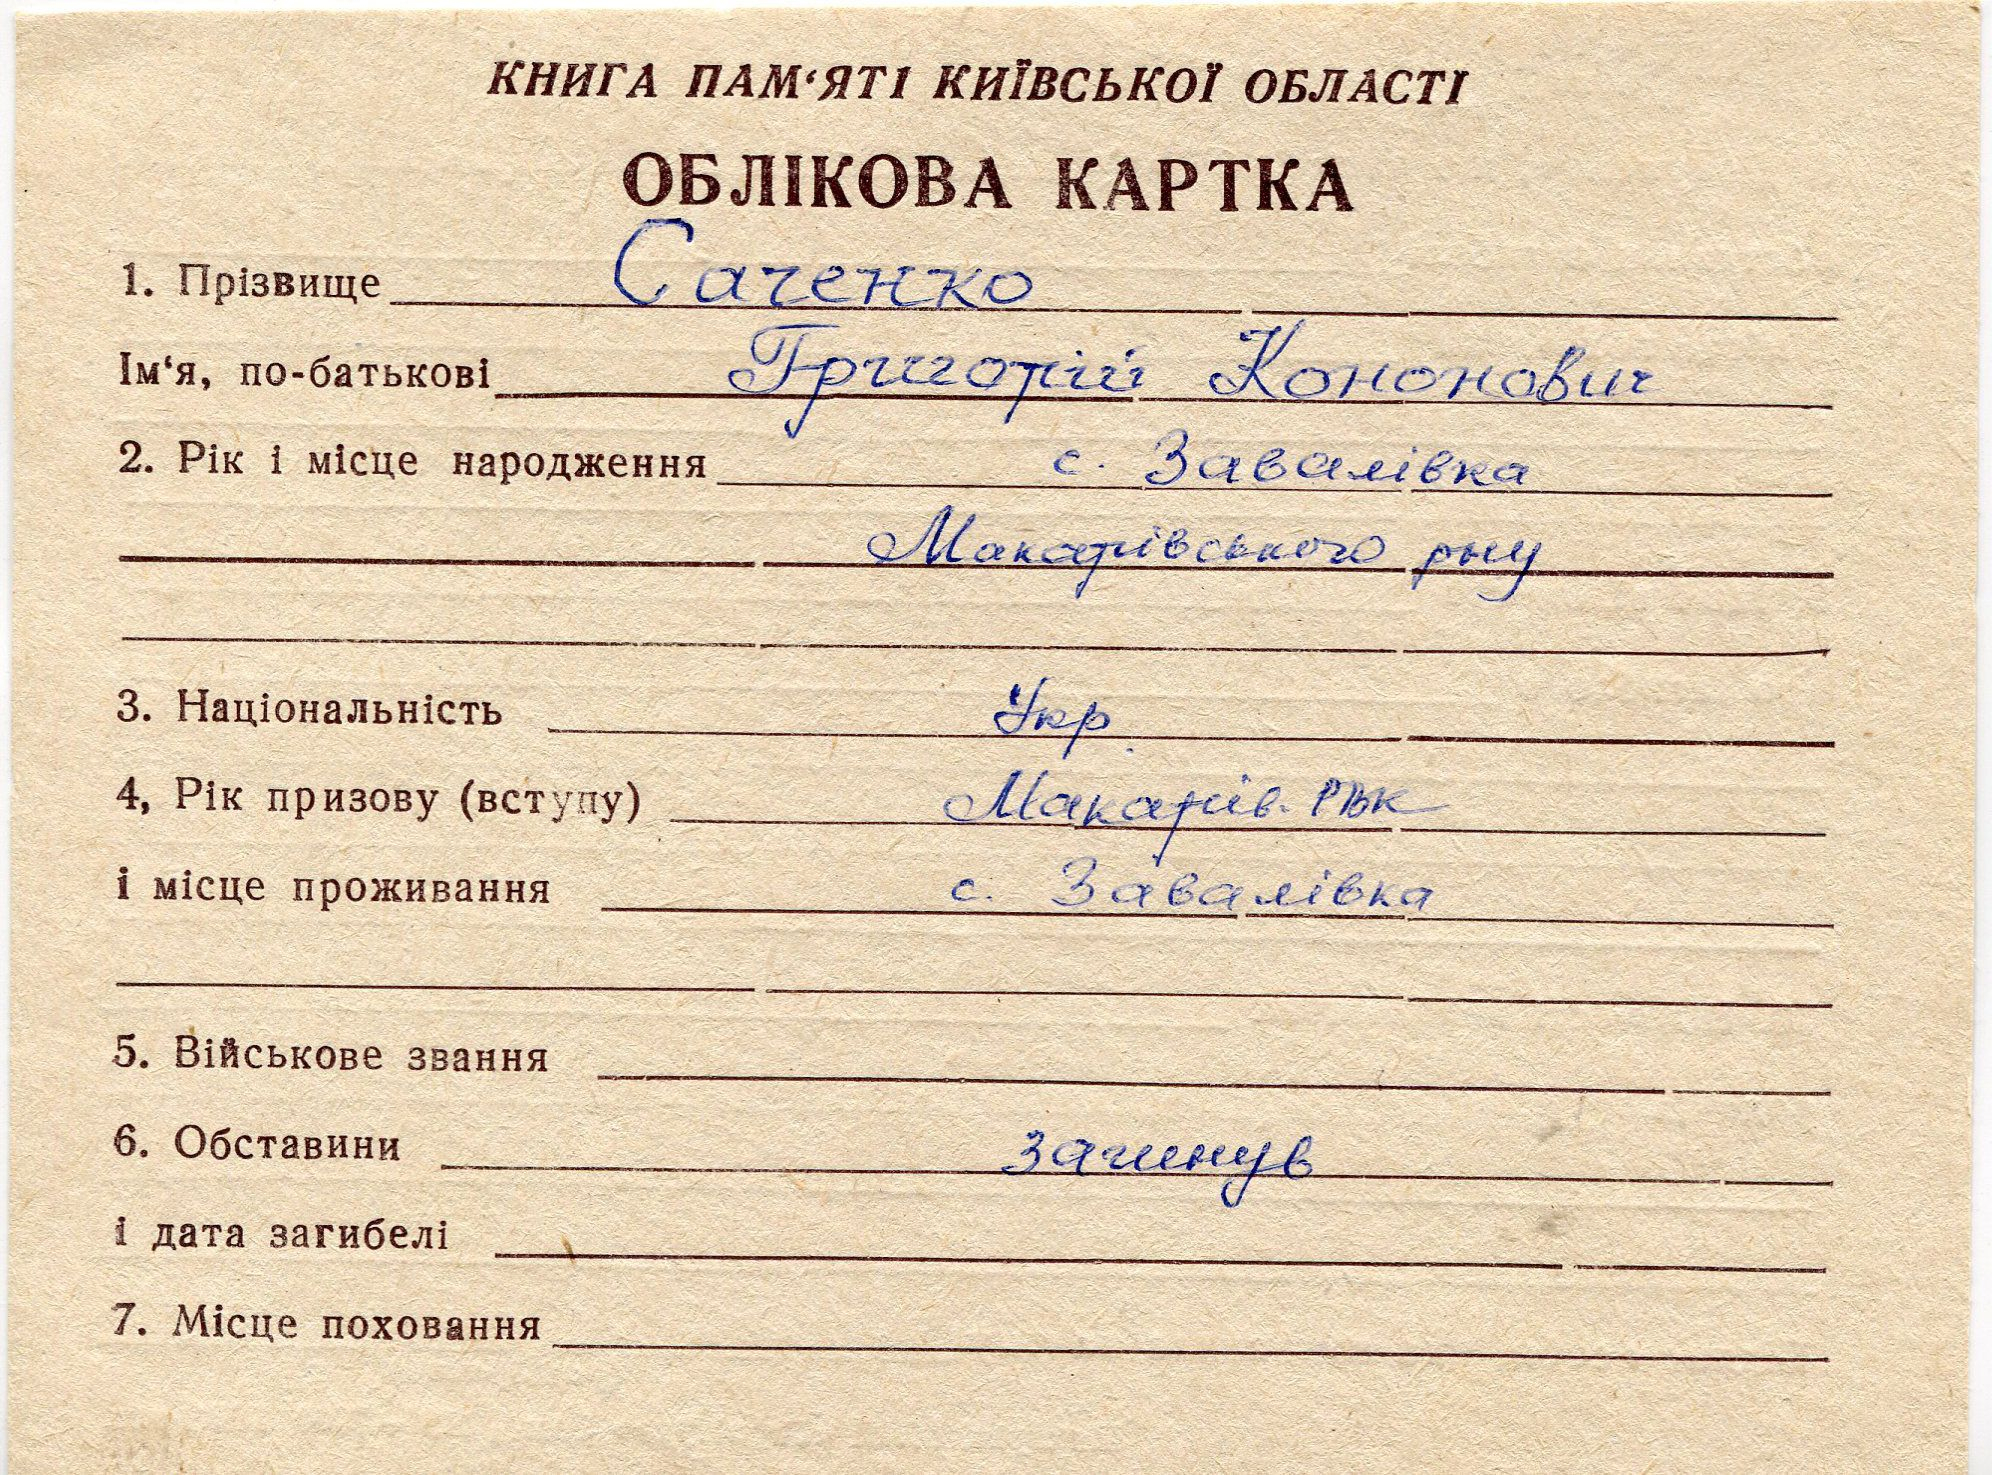 КНИГА ПАМ‘ЯТІ КИЇВСЬКОЇ ОБЛАСТІ
ОБЛІКОВА КАРТКА
1. Прізвище Саченко
Ім‘я, по-батькові Григорій Кононович
2. Рік і місце народження с. Завалівка
Макарівського рну
3. Національність Укр
4, Рік призову (вступу) Макарів. РВК
і місце проживання с. Завалівка
5. Військове звання
6. Обставини загинув
і дата загибелі
7. Місце поховання